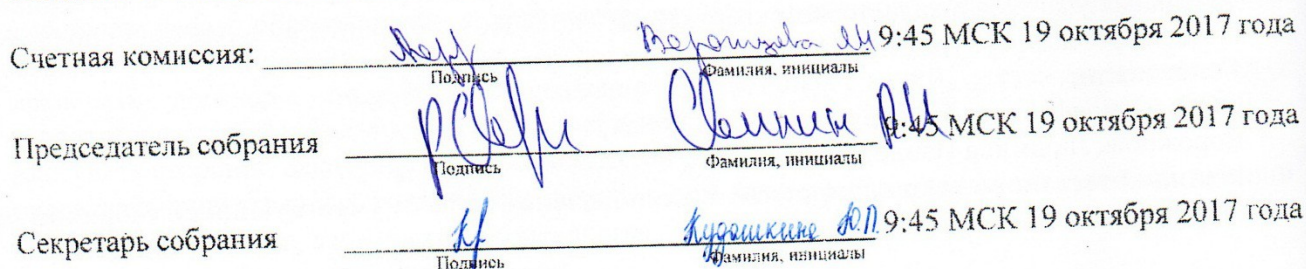 Счетная комиссия: 9:45 МСК 19 октября 2017 года
Подпись Фамилия, инициалы
Председатель собрания 9:45 МСК 19 октября 2017 года
Подпись Фамилия, инициалы
Секретарь собрания Кудашкина Ю.П. 9:45 МСК 19 октября 2017 года
Подпись Фамилия, инициалы